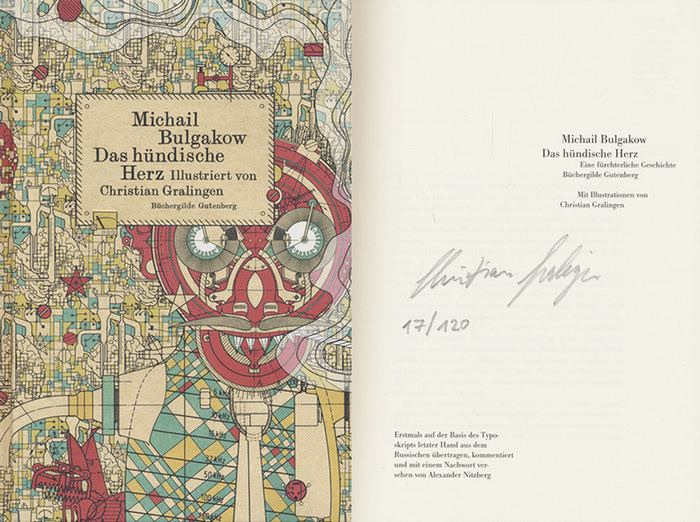 Michail
Bulgakow
Das hündische
Herz Illustriert von
Christian Gralingen
Büchergilde Gutenberg
5 kHz
10 kHz
15 kHz
50 kHz
100 kHz
Michail Bulgakow
Das hündische Herz
Eine fürchterliche Geschichte
Büchergilde Gutenberg
Mit Illustrationen von
Christian Gralingen
Christian Gralingen
17/120
Erstmals auf der Basis des Typo-
skripts letzter Hand aus dem
Russischen übertragen, kommentiert
und mit einem Nachwort ver-
sehen von Alexander Nitzberg